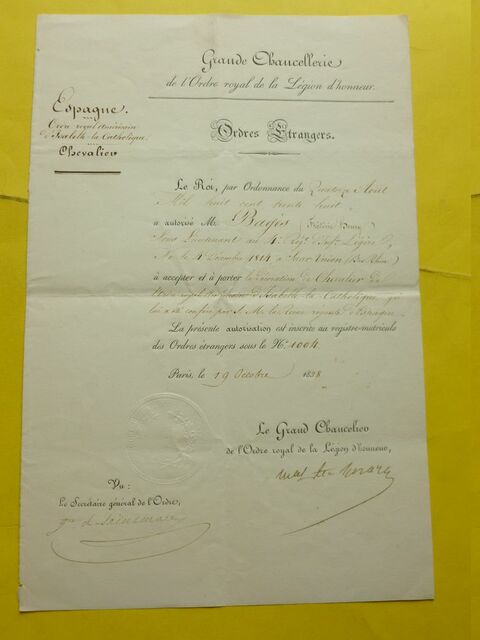 Grande Chancellerie
de l'Ordre royal de la Légion d'honneur.
Espagne.
Ordre royal américain
d'Isabelle-la-Catholique.
Chevalier
Ordres Étrangers.
Le Roi, par Ordonnance du Quinze Août
Mil huit cent trente huit
a autorisé M. (Frédéric Henry)
Sous Lieutenant au 4e Régt d'Inf. Légère
Né le 1er Décembre 1814 à Sarre Union (Bas Rhin)
à accepter et à porter la décoration de Chevalier de
l'Ordre royal américain d'Isabelle-la-Catholique, qui
lui a été conféré par S. M. la Reine régente d'Espagne.
La présente autorisation est inscrite au registre-matricule
des Ordres étrangers sous le No. 1004.
Paris, le 19 Octobre 1838
Le Grand Chancelier
de l'Ordre royal de la Légion d'honneur,
Vu:
Le Secrétaire général de l'Ordre,